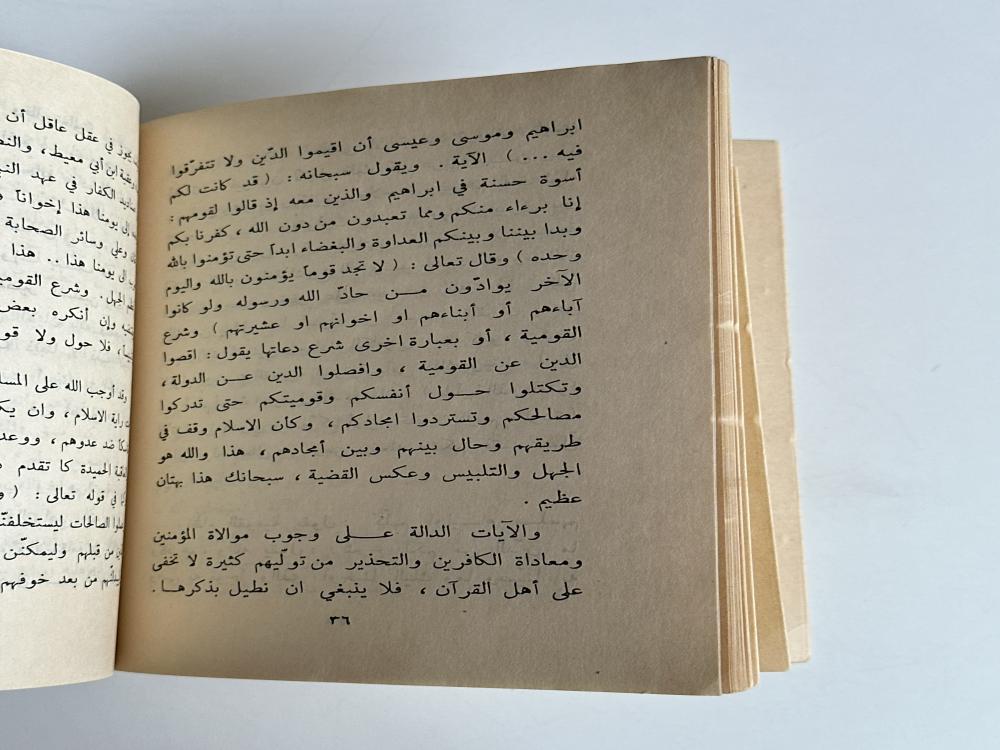 ابراهيم وموسى وعيسى أن اقيموا الدّين ولا تتفرّقوا
فيه ... ) الآية . ويقول سبحانه : ( قد كانت لكم
أسوة حسنة في ابراهيم والذين معه إذ قالوا لقومهم :
إنا برءاء منكم ومما تعبدون من دون الله ، كفرنا بكم
وبدا بيننا وبينكم العداوة والبغضاء ابداً حتى تؤمنوا بالله
وحده ) وقال تعالى : ( لا تجد قوماً يؤمنون بالله واليوم
الآخر يوادّون من حادّ الله ورسوله ولو كانوا
آباءهم أو أبناءهم او اخوانهم او عشيرتهم ) وشرع
القومية ، أو بعبارة اخرى شرع دعاتها يقول : اقصوا
الدين عن القومية ، وافصلوا الدين عن الدولة ،
وتكتلوا حول أنفسكم وقوميتكم حتى تدركوا
مصالحكم وتستردوا امجادكم ، وكان الاسلام وقف في
طريقهم وحال بينهم وبين أمجادهم ، هذا والله هو
الجهل والتلبيس وعكس القضية ، سبحانك هذا بهتان
عظيم .
والآيات الدالة على وجوب موالاة المؤمنين
ومعاداة الكافرين والتحذير من تولّيهم كثيرة لا تخفى
على أهل القرآن ، فلا ينبغي ان نطيل بذكرها .
٣٦
في عقل عاقل أن
ابن أبي معيط ، والنض
الكفار في عهد النب
إلى يومنا هذا إخواناً
وعلي وسائر الصحابة
الى يومنا هذا .. هذا
الجهل . وشرع القومية
وإن أنكره بعض
، فلا حول ولا قو
وقد أوجب الله على المسل
راية الاسلام ، وان يك
ضد عدوهم ، ووعد
الحميدة كما تقدم
في قوله تعالى : ( و
الصالحات ليستخلفنّ
من قبلهم وليمكّنن
من بعد خوفهم